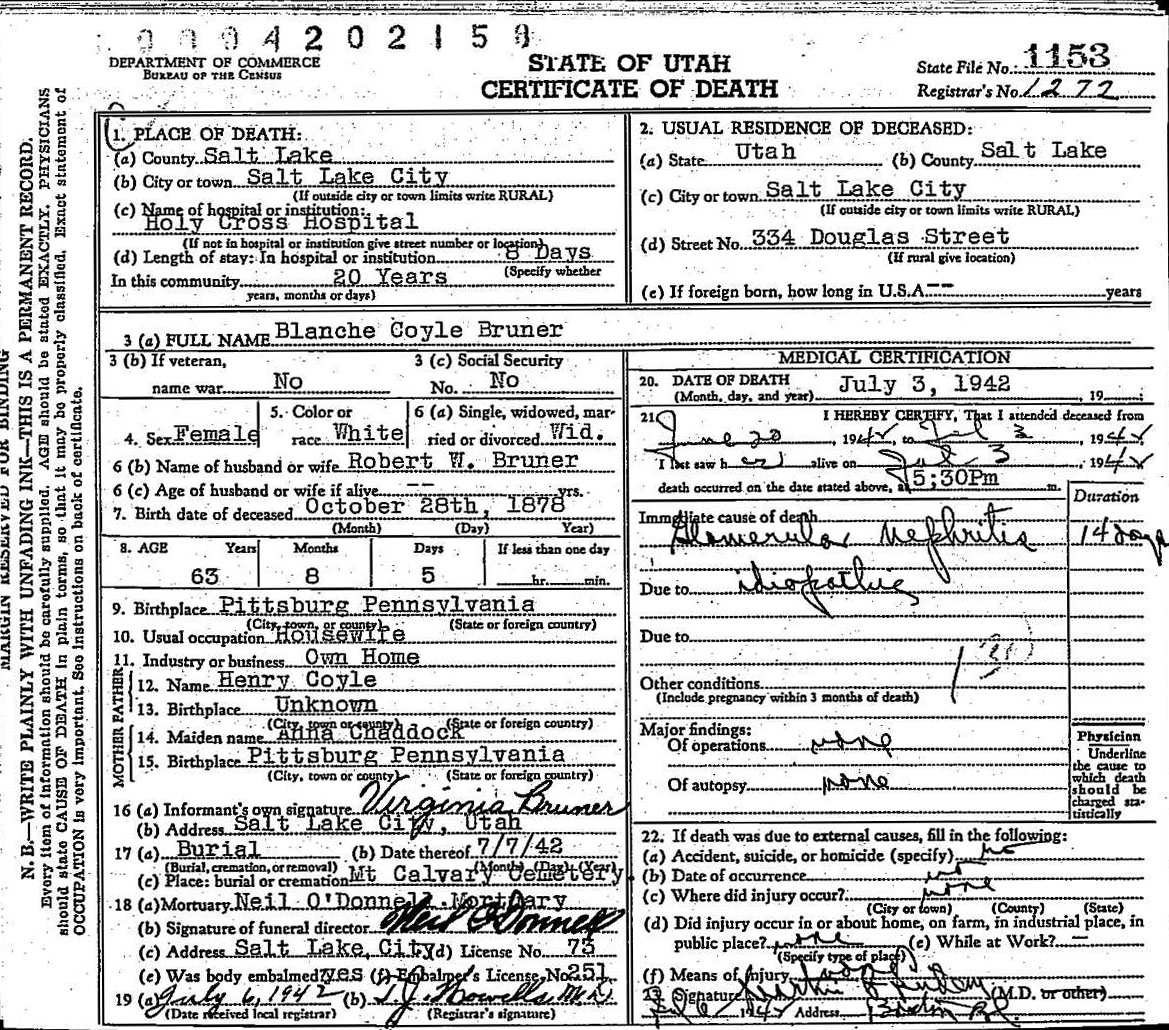 0004202150
DEPARTMENT OF COMMERCE
BUREAU OF THE CENSUS
STATE OF UTAH
CERTIFICATE OF DEATH
State File No. 1153
Registrar's No. 1272
MARGIN RESERVED FOR BINDING
N. B.—WRITE PLAINLY WITH UNFADING INK—THIS IS A PERMANENT RECORD.
Every item of information should be carefully supplied. AGE should be stated EXACTLY. PHYSICIANS
should state CAUSE OF DEATH in plain terms, so that it may be properly classified. Exact statement of
OCCUPATION is very important. See instructions on back of certificate.
1. PLACE OF DEATH:
(a) County Salt Lake
(b) City or town Salt Lake City
(If outside city or town limits write RURAL)
(c) Name of hospital or institution:
Holy Cross Hospital
(If not in hospital or institution give street number or location)
(d) Length of stay: In hospital or institution 8 Days
(Specify whether
In this community 20 Years
years, months or days)
2. USUAL RESIDENCE OF DECEASED:
(a) State Utah (b) County Salt Lake
(c) City or town Salt Lake City
(If outside city or town limits write RURAL)
(d) Street No. 334 Douglas Street
(If rural give location)
(e) If foreign born, how long in U.S.A. -- years
3 (a) FULL NAME Blanche Coyle Bruner
3 (b) If veteran,
name war No
3 (c) Social Security
No. No
4. Sex Female
5. Color or
race White
6 (a) Single, widowed, mar-
ried or divorced Wid.
6 (b) Name of husband or wife Robert W. Bruner
6 (c) Age of husband or wife if alive -- yrs.
7. Birth date of deceased October 28th, 1878
(Month) (Day) Year)
8. AGE Years Months Days If less than one day
63 8 5 hr. min.
9. Birthplace Pittsburg Pennsylvania
(City, town, or county) (State or foreign country)
10. Usual occupation Housewife
11. Industry or business Own Home
FATHER
12. Name Henry Coyle
13. Birthplace Unknown
(City, town or county) (State or foreign country)
MOTHER
14. Maiden name Anna Chaddock
15. Birthplace Pittsburg Pennsylvania
(City, town or county) (State or foreign country)
16 (a) Informant's own signature Virginia Bruner
(b) Address Salt Lake City, Utah
17 (a) Burial (b) Date thereof 7/7/42
(Burial, cremation, or removal) (Month) (Day) (Year)
(c) Place: burial or cremation Mt Calvary Cemetery
18 (a) Mortuary Neil O'Donnell Mortuary
(b) Signature of funeral director Neil O'Donnell
(c) Address Salt Lake City (d) License No. 73
(e) Was body embalmed? yes (f) Embalmer's License, No. 251
19 (a) July 6, 1942 (b) T.J. Howells M.D.
(Date received local registrar) (Registrar's signature)
MEDICAL CERTIFICATION
20. DATE OF DEATH July 3, 1942
(Month, day, and year) 19
21. I HEREBY CERTIFY, That I attended deceased from
June 20, 1942, to Jul 3, 1942
I last saw her alive on Jul 3, 1942
death occurred on the date stated above, at 5;30Pm m.
Duration
Immediate cause of death
Glomerular Nephritis 14 days
Due to idiopathic
Due to
Other conditions
(Include pregnancy within 3 months of death)
Major findings:
Of operations none
Of autopsy none
Physician
Underline
the cause to
which death
should be
charged sta-
tistically
22. If death was due to external causes, fill in the following:
(a) Accident, suicide, or homicide (specify) no
(b) Date of occurrence no
(c) Where did injury occur? none
(City or town) (County) (State)
(d) Did injury occur in or about home, on farm, in industrial place, in
public place? none (e) While at Work? –
(Specify type of place)
(f) Means of Injury none
23. Signature (M.D. or other)
1942 Address Boston Bl.